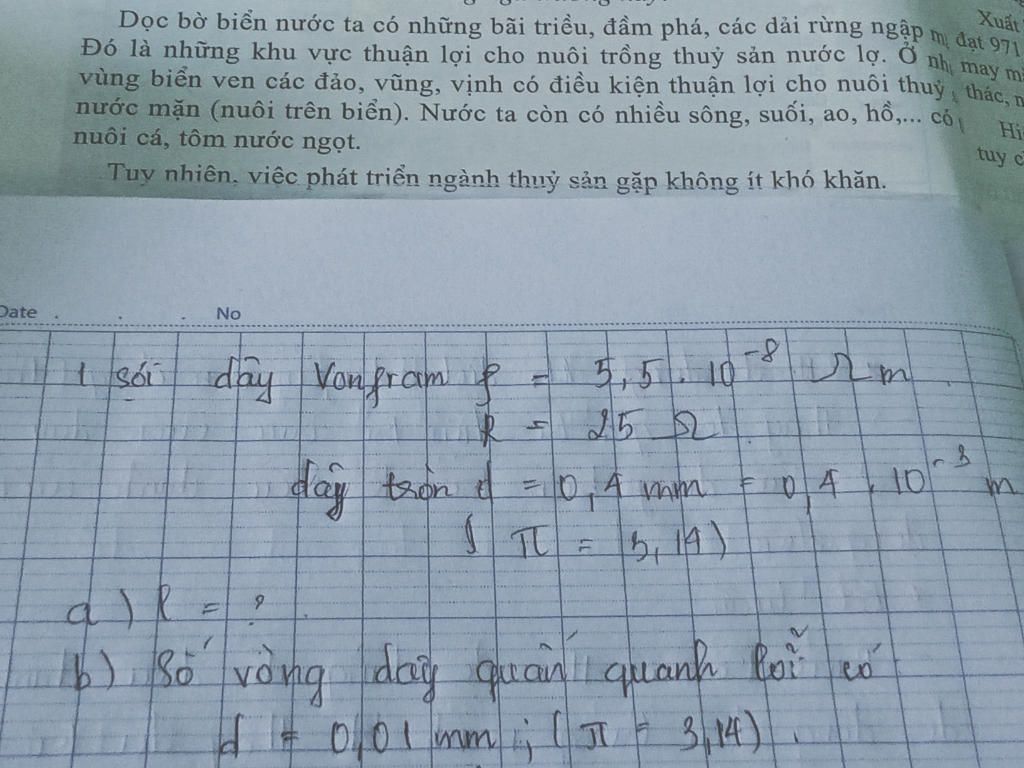 Dọc bờ biển nước ta có những bãi triều, đầm phá, các dải rừng ngập
Đó là những khu vực thuận lợi cho nuôi trồng thuỷ sản nước lợ. Ở
vùng biển ven các đảo, vũng, vịnh có điều kiện thuận lợi cho nuôi thuỷ
nước mặn (nuôi trên biển). Nước ta còn có nhiều sông, suối, ao, hồ,... có
nuôi cá, tôm nước ngọt.
Tuy nhiên, việc phát triển ngành thuỷ sản gặp không ít khó khăn.
Xuất
đạt 971
may
thác,
Hi
tuy
Date . . . No
1 sợi dây Vonfram ρ = 5,5 . 10⁻⁸ Ω m
R = 25 Ω
dây tròn d = 0,4 mm = 0,4 . 10⁻³ m
( π = 3,14)
a) l = ?
b) Số vòng dây quấn quanh lõi có
d = 0,01 mm ; ( π = 3,14) .